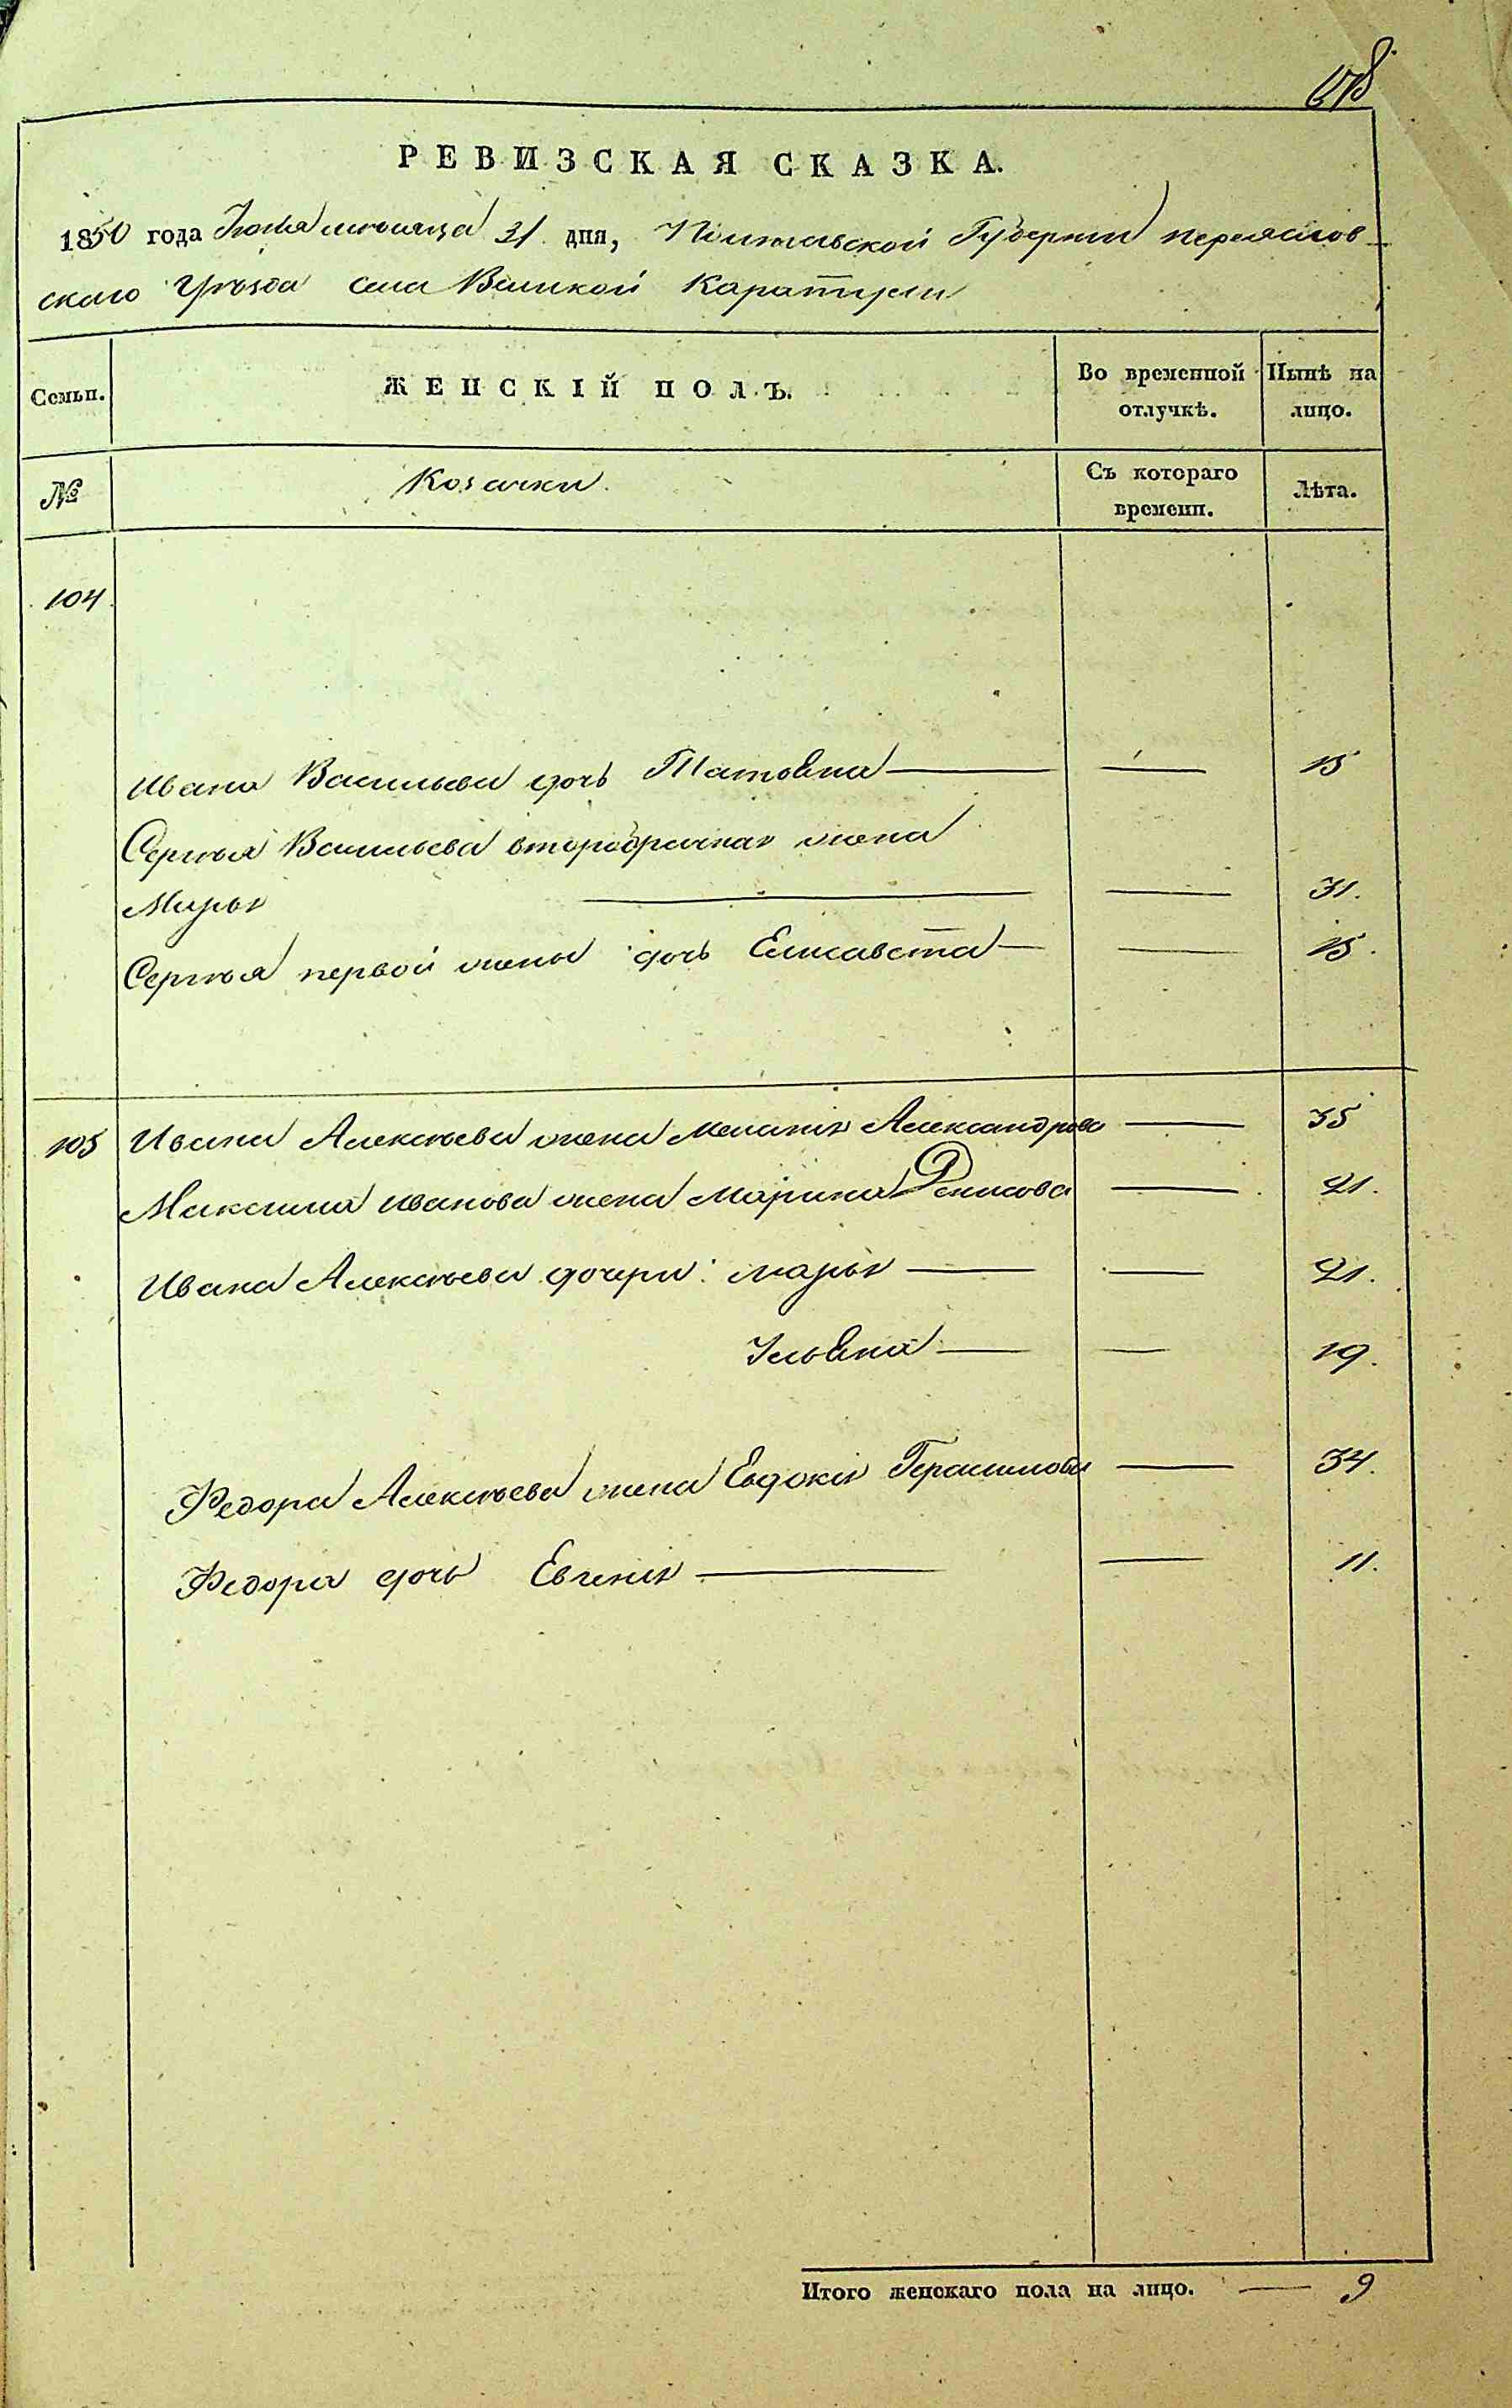 678
РЕВИЗСКАЯ СКАЗКА.
1850 года Іюля мѣсяца 31 дня, Полтавской Губерніи Переяслов-
скаго Уѣзда села Великой Каратули
Семьи. ЖЕНСКІЙ ПОЛЪ. Во временной отлучкѣ. Нынѣ на лицо.
№ Козачки. Съ котораго времени. Лѣта.
104
Ивана Васильева дочь Татьяна — — 15
Сергѣя Васильева второбрачная жена
Марья — — 31.
Сергѣя первой жены дочь Елисавета — — 15.
105 Ивана Алексѣева жена Меланія Александрова — 35
Максима Иванова жена Марина Денисова — 21.
Ивана Алексѣева дочери: Марья — — 21.
Ульяна — — 19.
Федора Алексѣева жена Евдокія Герасимова — 34.
Федора дочь Евгенія — — 11.
Итого женскаго пола на лицо. — 9